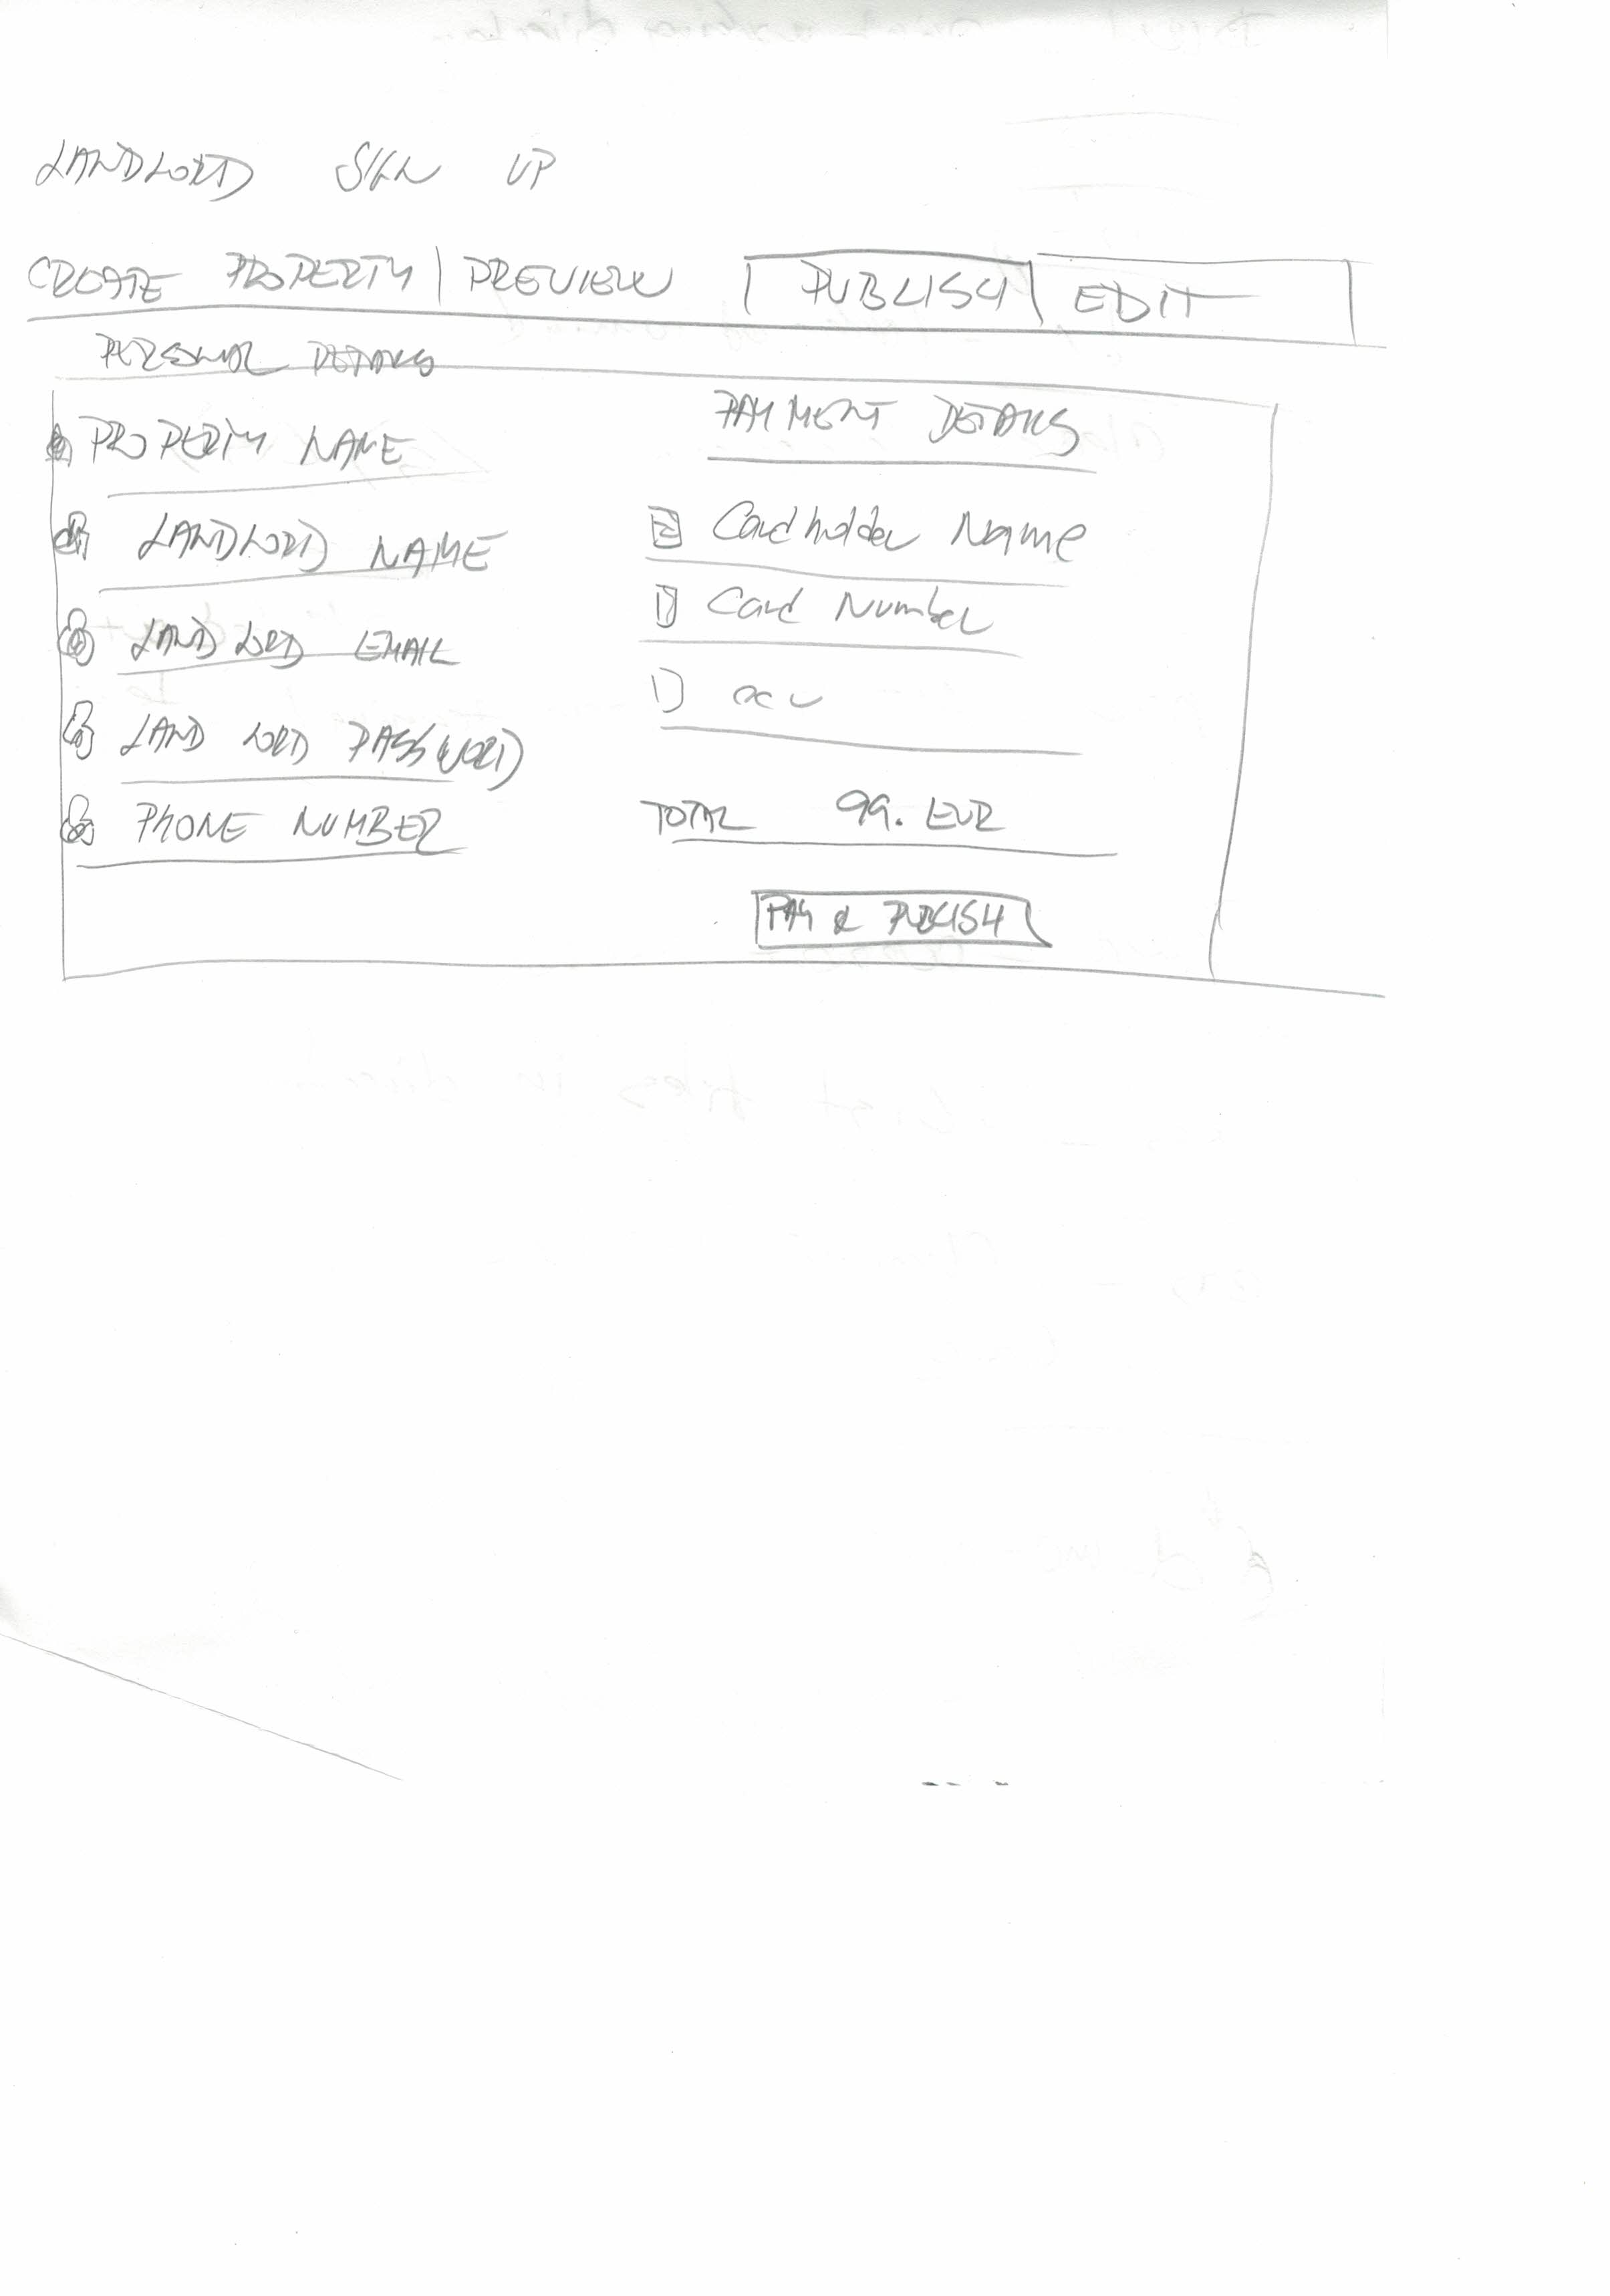 LANDLORD SIGN UP
CREATE PROPERTY | PREVIEW | PUBLISH | EDIT
PERSONAL DETAILS
PROPERTY NAME
LANDLORD NAME
LANDLORD EMAIL
LAND LORD PASSWORD
PHONE NUMBER
PAYMENT DETAILS
Cardholder Name
Card Number
TOTAL 99. EUR
PAY & PUBLISH